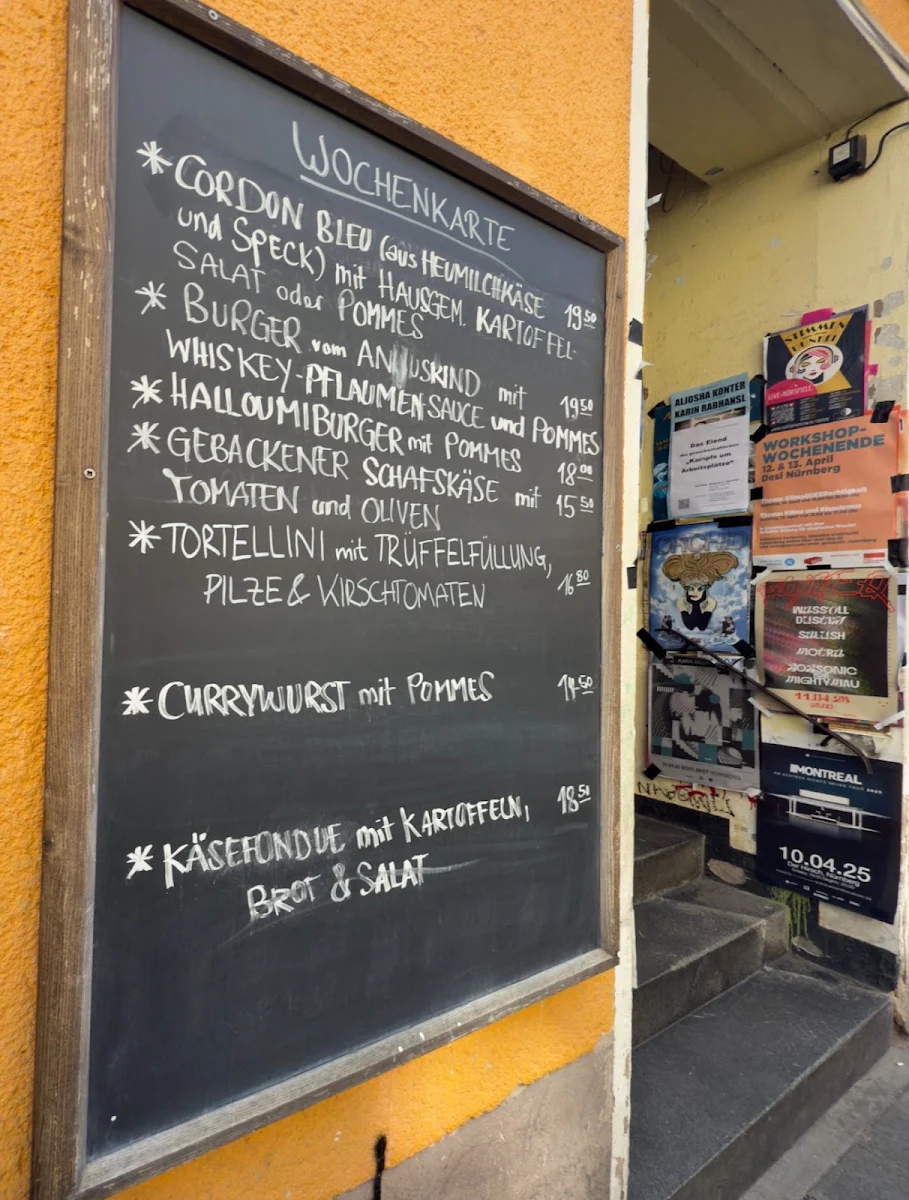 WOCHENKARTE
* CORDON BLEU (aus HEUMILCHKÄSE
und SPECK) mit HAUSGEM. KARTOFFEL- 19.50
SALAT oder POMMES
* BURGER vom ANGUSKIND mit
WHISKEY-PFLAUMENSAUCE und POMMES 19.50
* HALLOUMIBURGER mit POMMES 18.00
* GEBACKENER SCHAFSKÄSE mit 15.50
TOMATEN und OLIVEN
* TORTELLINI mit TRÜFFELFÜLLUNG,
PILZE & KIRSCHTOMATEN 16.80
* CURRYWURST mit POMMES 14.50
* KÄSEFONDUE mit KARTOFFELN, 18.50
BROT & SALAT
STIMMEN
DUNKEL
LIVE-HÖRSPIELE
ALJOSHA KONTER
KARIN RABHANSL
Das Elend
"Kampfs um
Arbeitsplätze"
WORKSHOP-
WOCHENENDE
12. & 13. April
Desi Nürnberg
SALISH
NOISONIC
MIGHTYMAU
11.04.25
MONTREAL
10.04.25
Der Hirsch, Nürnberg